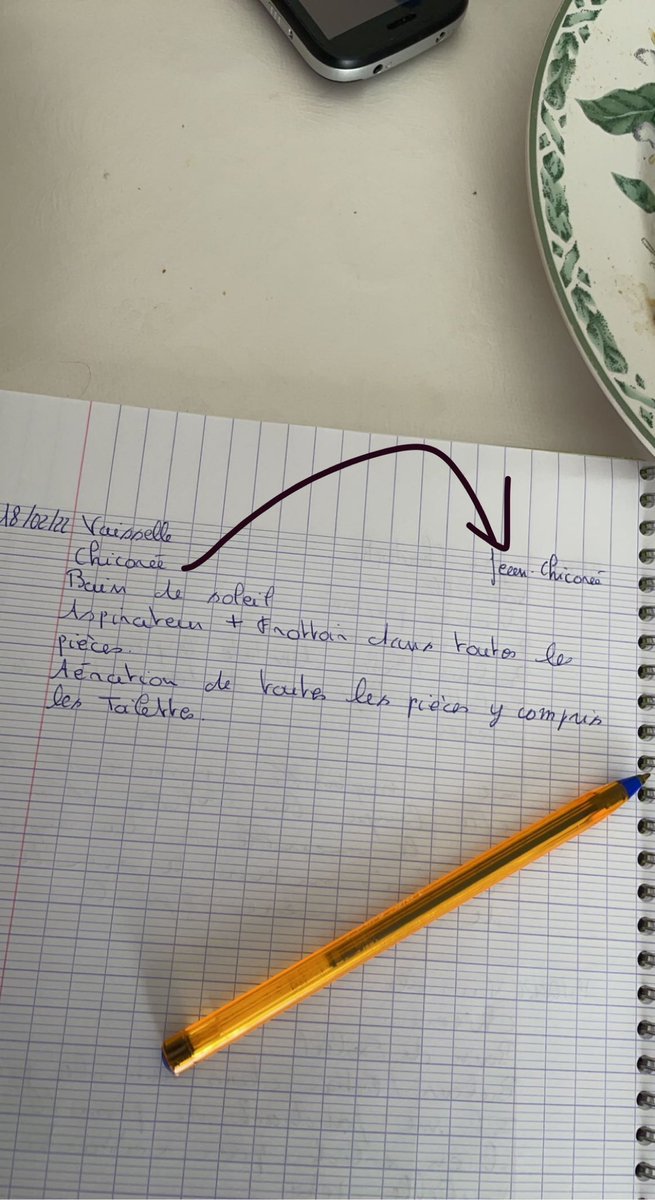 18/02/22 Vaisselle
Chicoreé
Jeeen-Chicoreé
Bain de soleil
Aspirateur + Frottoir dans toutes les
pièces.
Aération de toutes les pièces y compris
les Toilettes.